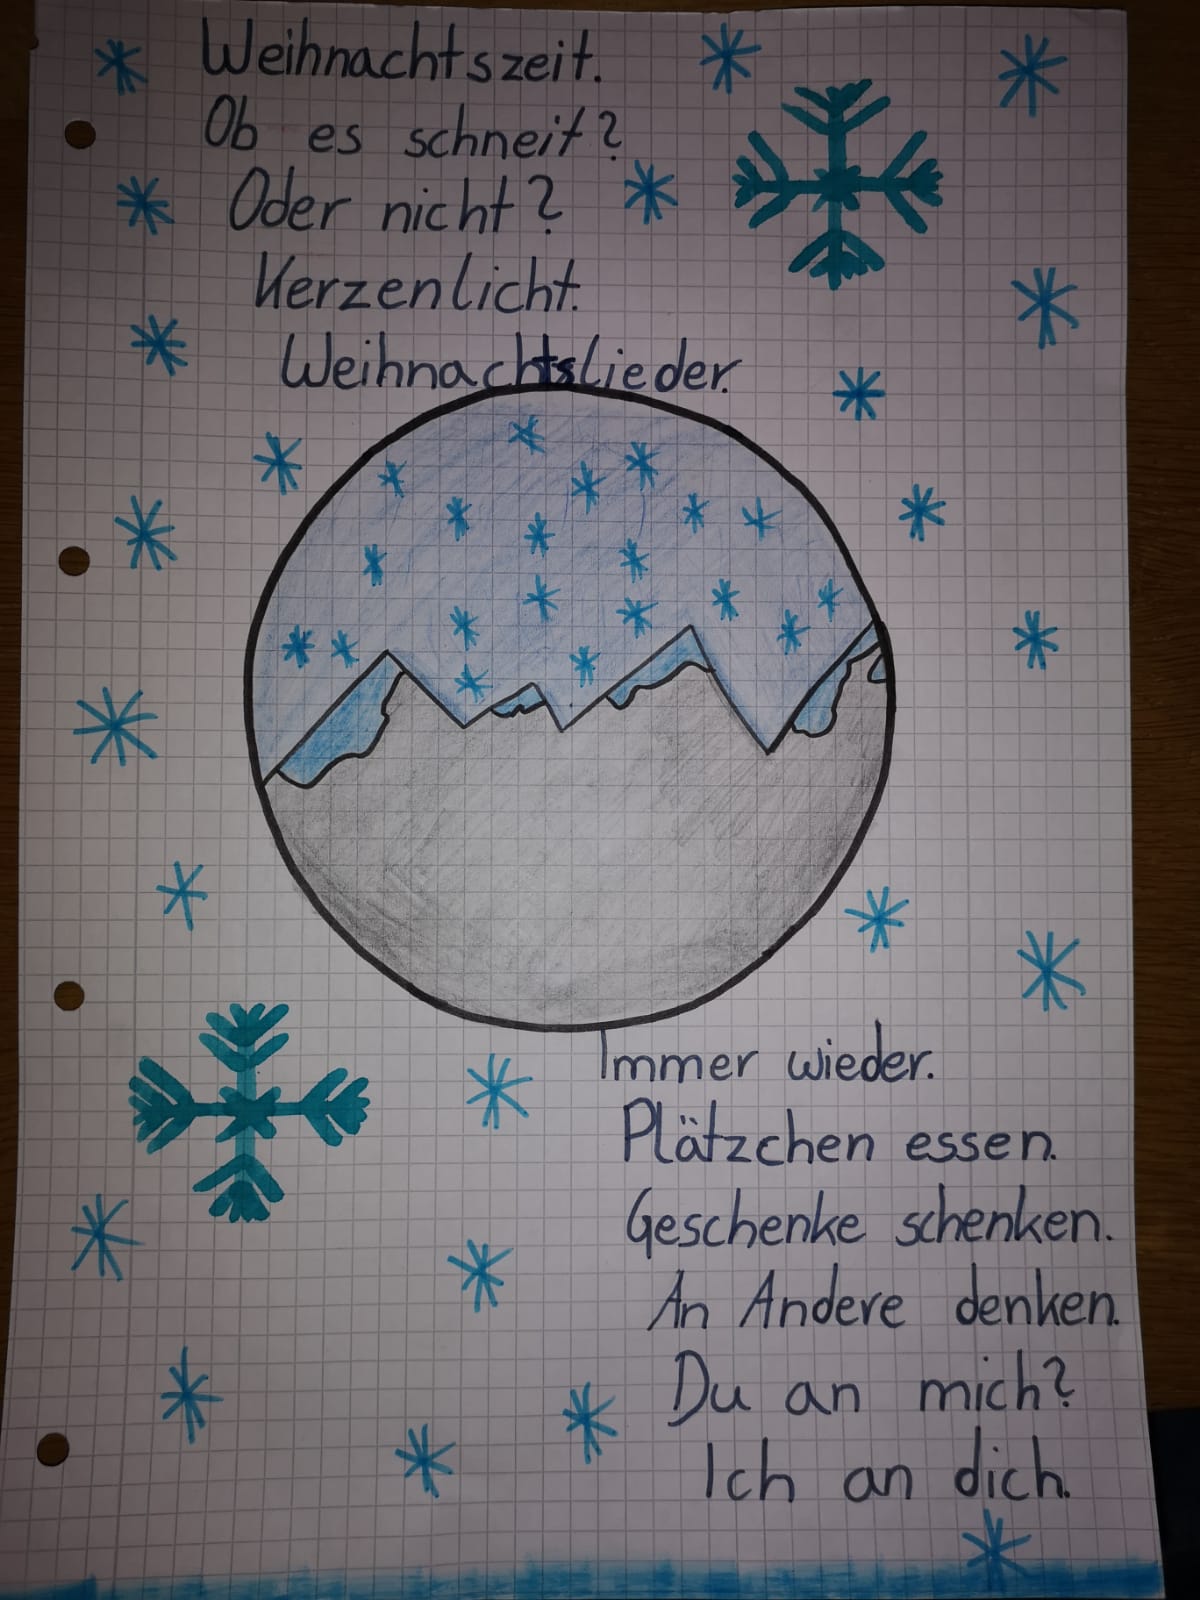 Weihnachtszeit.
Ob es schneit?
Oder nicht?
Kerzenlicht.
Weihnachtslieder.
Immer wieder.
Plätzchen essen.
Geschenke schenken.
An Andere denken.
Du an mich?
Ich an dich.